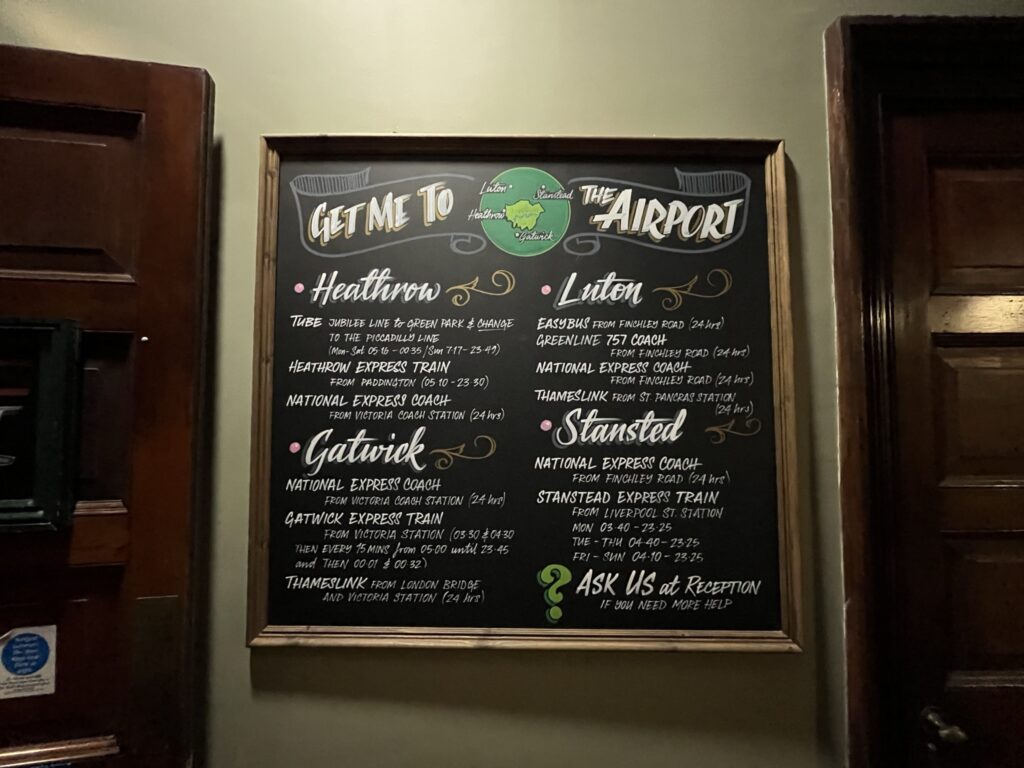 GET ME TO
THE AIRPORT
Luton
Stanstead
Heathrow
Gatwick
Heathrow
TUBE JUBILEE LINE to GREEN PARK & CHANGE
TO THE PICCADILLY LINE
(Mon-Sat 05:16 - 00:35 / Sun 7:17 - 23:49)
HEATHROW EXPRESS TRAIN
FROM PADDINGTON (05:10 - 23:30)
NATIONAL EXPRESS COACH
FROM VICTORIA COACH STATION (24 hrs)
Gatwick
NATIONAL EXPRESS COACH
FROM VICTORIA COACH STATION (24 hrs)
GATWICK EXPRESS TRAIN
FROM VICTORIA STATION (03:30 & 04:30
THEN EVERY 15 MINS from 05:00 until 23:45
and THEN 00:01 & 00:32)
THAMESLINK FROM LONDON BRIDGE
AND VICTORIA STATION (24 hrs)
Luton
EASYBUS FROM FINCHLEY ROAD (24 hrs)
GREENLINE 757 COACH
FROM FINCHLEY ROAD (24 hrs)
NATIONAL EXPRESS COACH
FROM FINCHLEY ROAD (24 hrs)
THAMESLINK FROM ST. PANCRAS STATION
(24 hrs)
Stansted
NATIONAL EXPRESS COACH
FROM FINCHLEY ROAD (24 hrs)
STANSTEAD EXPRESS TRAIN
FROM LIVERPOOL ST. STATION
MON 03:40 - 23:25
TUE - THU 04:40 - 23:25
FRI - SUN 04:10 - 23:25
? ASK US at RECEPTION
IF YOU NEED MORE HELP